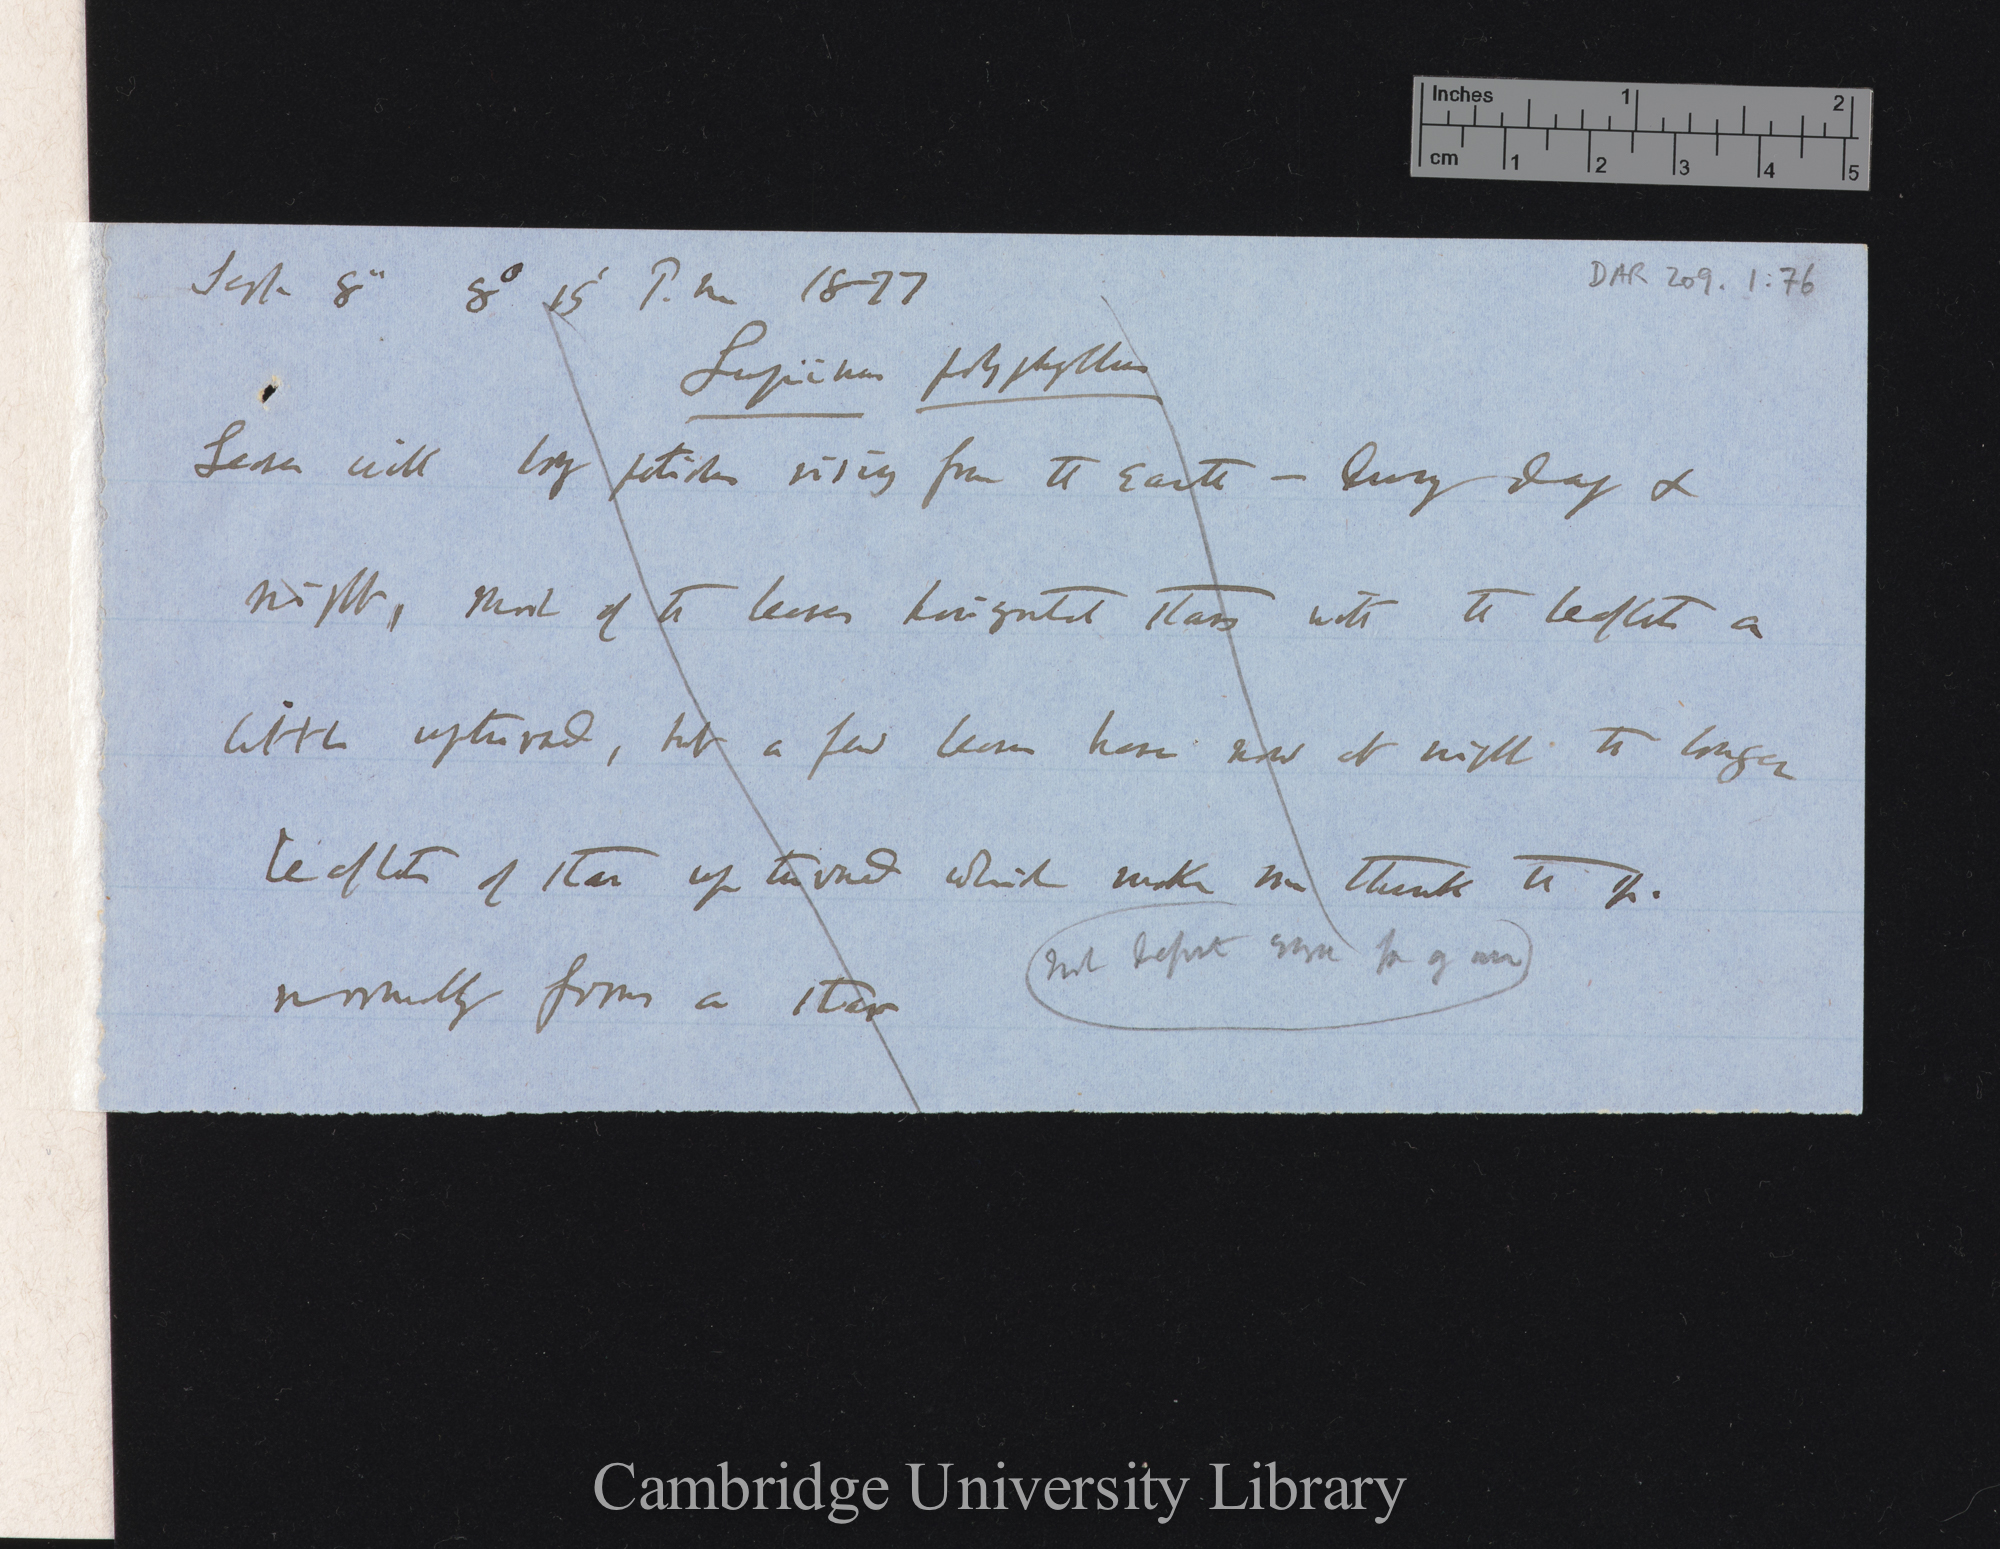 Inches 1 2
cm 1 2 3 4 5
DAR 209. 1:76
Sept. 8" 8° 15' P.m 1877
Lupinus polyphyllus
Leaves with long petioles rising from the Earth — During day &
night, most of the leaves horizontal stars with the leaflets a
little upturned, but a few leaves have now at night the longer
leaflets of star upturned which makes me think the sp.
normally forms a star
not
Cambridge University Library